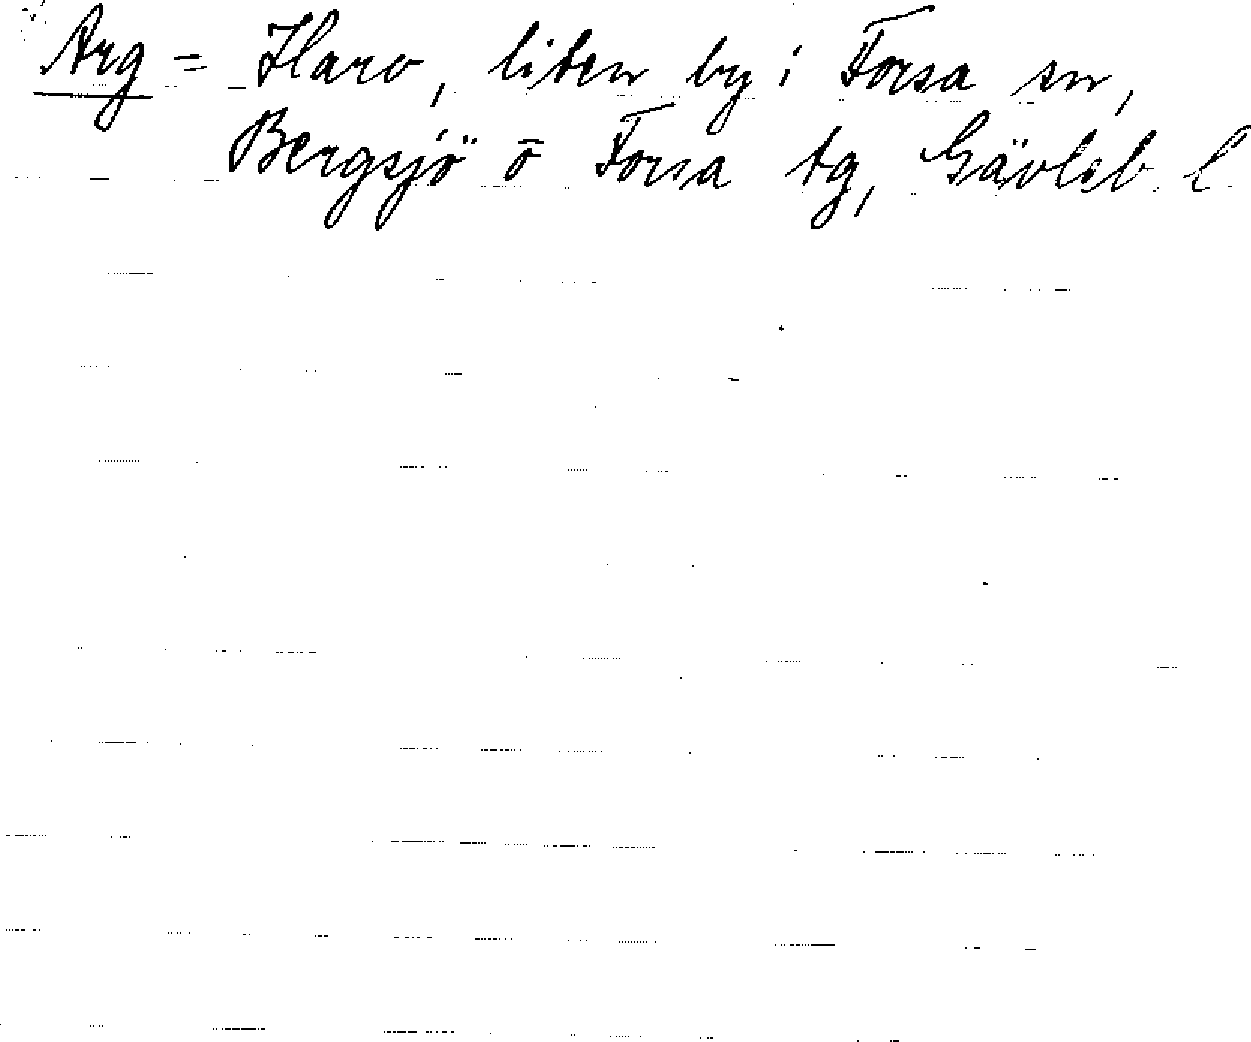 Arg = Harv, liten by i Forsa sn,
Bergsjö o Forsa tg, Gävleb. l